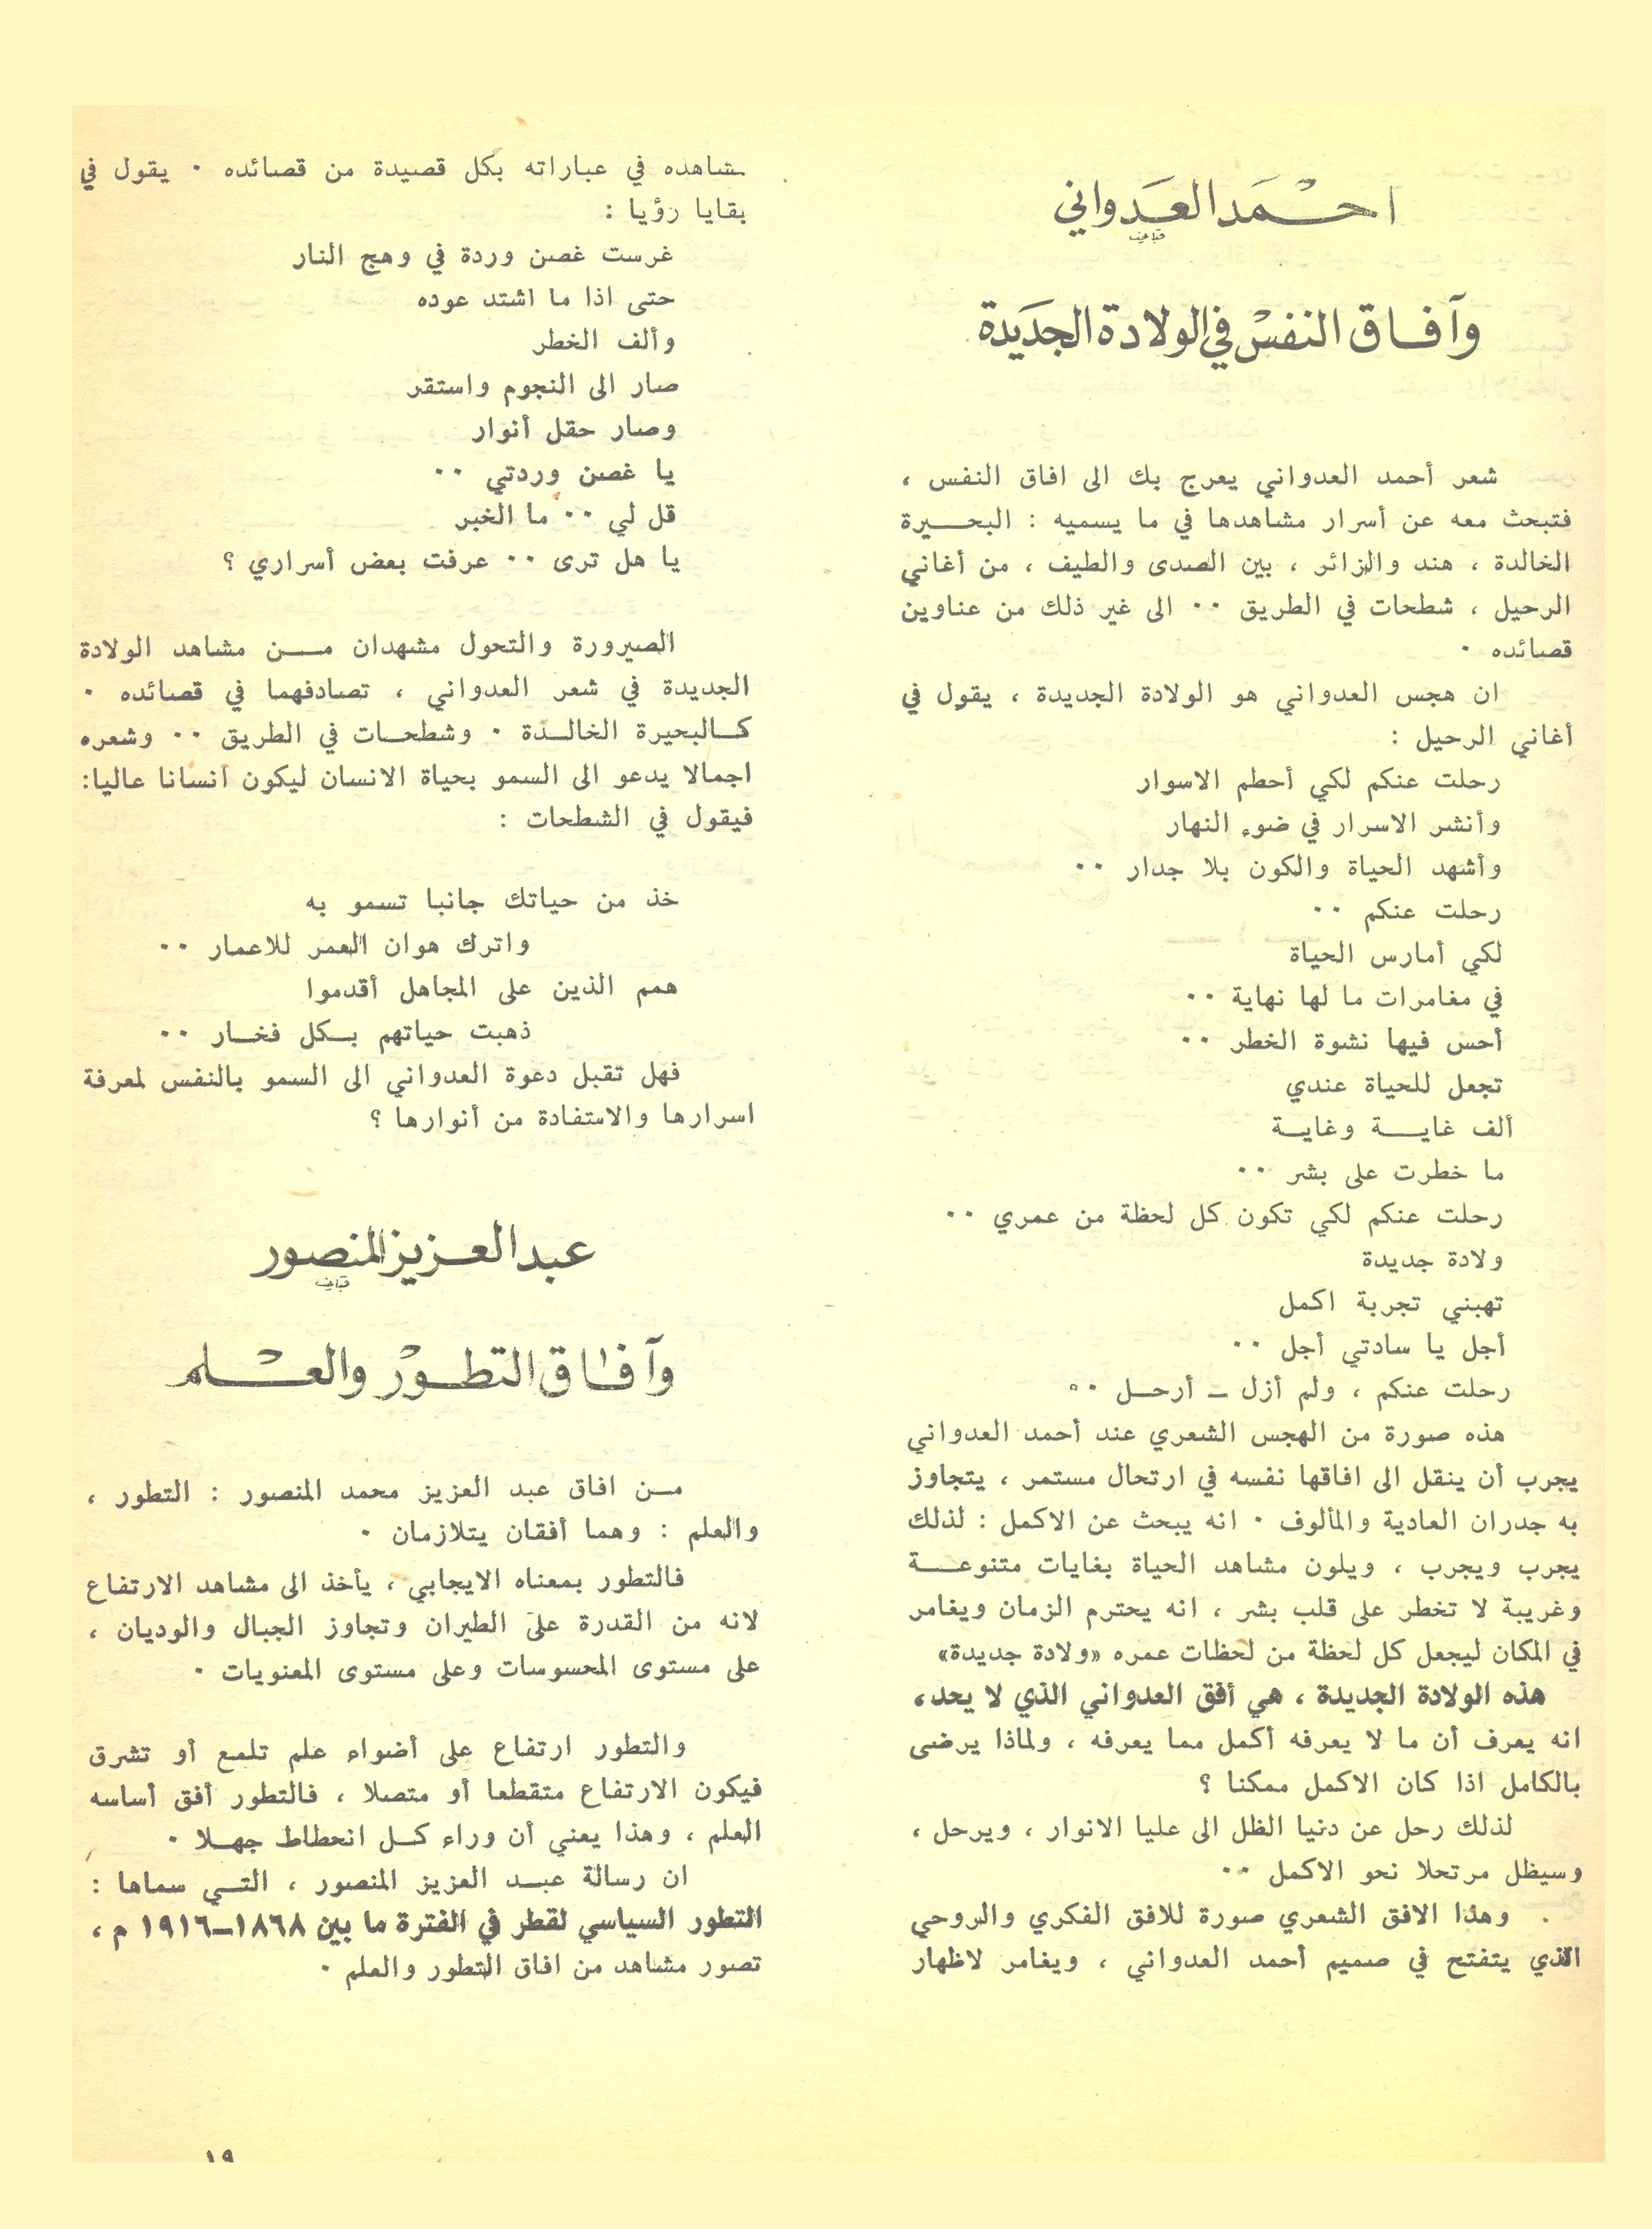 احمد العدواني
وآفاق النفس في الولادة الجديدة
شعر أحمد العدواني يعرج بك الى افاق النفس ،
فتبحث معه عن أسرار مشاهدها في ما يسميه : البحيرة
الخالدة ، هند والزائر ، بين الصدى والطيف ، من أغاني
الرحيل ، شطحات في الطريق ٠٠ الى غير ذلك من عناوين
قصائده ٠
ان هجس العدواني هو الولادة الجديدة ، يقول في
أغاني الرحيل :
رحلت عنكم لكي أحطم الاسوار
وأنشر الاسرار في ضوء النهار
وأشهد الحياة والكون بلا جدار ٠٠
رحلت عنكم ٠٠
لكي أمارس الحياة
في مغامرات ما لها نهاية ٠٠
أحس فيها نشوة الخطر ٠٠
تجعل للحياة عندي
ألف غايـــة وغايـة
ما خطرت على بشر ٠٠
رحلت عنكم لكي تكون كل لحظة من عمري ٠٠
ولادة جديدة
تهبني تجربة اكمل
أجل يا سادتي أجل ٠٠
رحلت عنكم ، ولم أزل ــ أرحــل ٠٠
هذه صورة من الهجس الشعري عند أحمد العدواني
يجرب أن ينقل الى افاقها نفسه في ارتحال مستمر ، يتجاوز
به جدران العادية والمألوف ٠ انه يبحث عن الاكمل : لذلك
يجرب ويجرب ، ويلون مشاهد الحياة بغايات متنوعـــة
وغريبة لا تخطر على قلب بشر ، انه يحترم الزمان ويغامر
في المكان ليجعل كل لحظة من لحظات عمره «ولادة جديدة»
هذه الولادة الجديدة ، هي أفق العدواني الذي لا يحد،
انه يعرف أن ما لا يعرفه أكمل مما يعرفه ، ولماذا يرضى
بالكامل اذا كان الاكمل ممكنا ؟
لذلك رحل عن دنيا الظل الى عليا الانوار ، ويرحل ،
وسيظل مرتحلا نحو الاكمل ٠٠
وهذا الافق الشعري صورة للافق الفكري والروحي
الذي يتفتح في صميم أحمد العدواني ، ويغامر لاظهار
مشاهده في عباراته بكل قصيدة من قصائده ٠ يقول في
بقايا رؤيا :
غرست غصن وردة في وهج النار
حتى اذا ما اشتد عوده
وألف الخطر
صار الى النجوم واستقر
وصار حقل أنوار
يا غصن وردتي ٠٠
قل لي ٠٠ ما الخبر
يا هل ترى ٠٠ عرفت بعض أسراري ؟
الصيرورة والتحول مشهدان مـــن مشاهد الولادة
الجديدة في شعر العدواني ، تصادفهما في قصائده ٠
كـالبحيرة الخالـدة ٠ وشطحـات في الطريق ٠٠ وشعره
اجمالا يدعو الى السمو بحياة الانسان ليكون انسانا عاليا:
فيقول في الشطحات :
خذ من حياتك جانبا تسمو به
واترك هوان العمر للاعمار ٠٠
همم الذين على المجاهل أقدموا
ذهبت حياتهم بـكل فخـار ٠٠
فهل تقبل دعوة العدواني الى السمو بالنفس لمعرفة
اسرارها والاستفادة من أنوارها ؟
عبد العزيز المنصور
وآفاق التطور والعلم
مــن افاق عبد العزيز محمد المنصور : التطور ،
والعلم : وهما أفقان يتلازمان ٠
فالتطور بمعناه الايجابي ، يأخذ الى مشاهد الارتفاع
لانه من القدرة على الطيران وتجاوز الجبال والوديان ،
على مستوى المحسوسات وعلى مستوى المعنويات ٠
والتطور ارتفاع على أضواء علم تلمع أو تشرق
فيكون الارتفاع متقطعا أو متصلا ، فالتطور أفق أساسه
العلم ، وهذا يعني أن وراء كـل انحطاط جهـلا ٠
ان رسالة عبـد العزيز المنصور ، التـي سماها :
التطور السياسي لقطر في الفترة ما بين ١٨٦٨ــ١٩١٦ م ،
تصور مشاهد من افاق التطور والعلم ٠
١٩